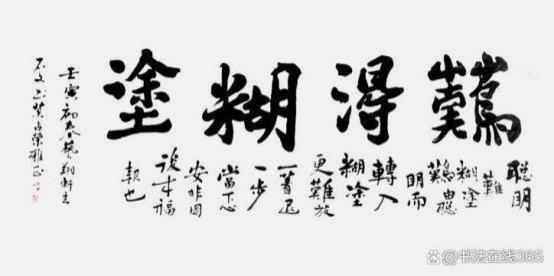 難得糊塗
聰明
難
糊塗
難由聰
明而
轉入
糊塗
更難放
一著退
一步
當下心
安非圖
後来福
報也
壬寅初春藝翔軒主
@书法在线365